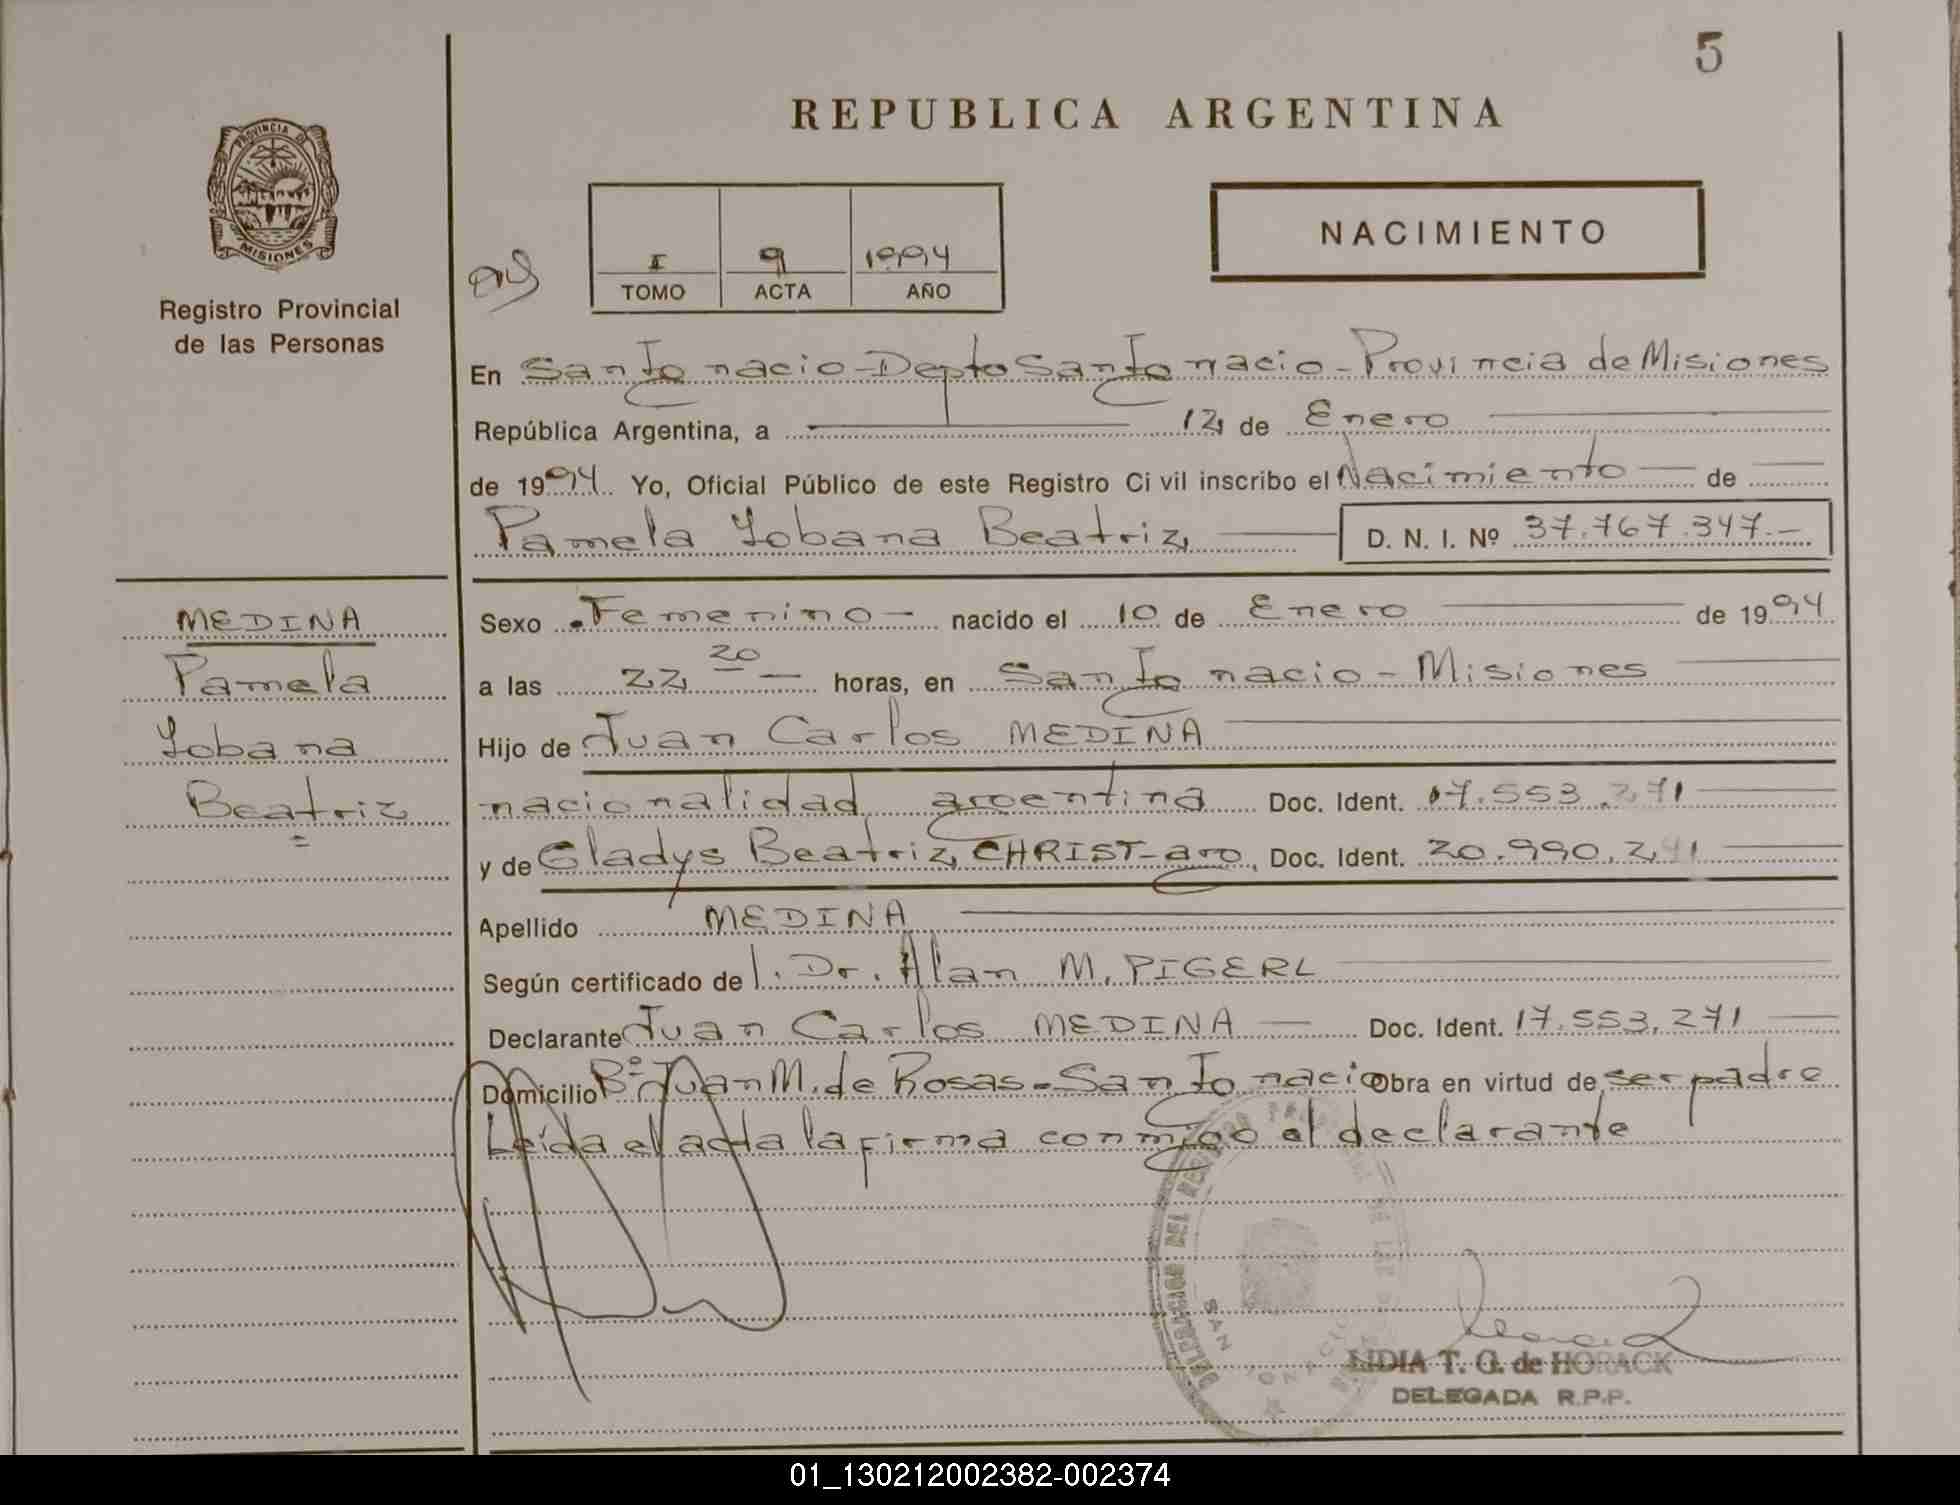 5
REPUBLICA ARGENTINA
PROVINCIA DE
MISIONES
Registro Provincial
de las Personas
I 9 1994
TOMO ACTA AÑO
NACIMIENTO
En San Ignacio - Depto San Ignacio - Provincia de Misiones
República Argentina, a 12 de Enero
de 1994. Yo, Oficial Público de este Registro Civil inscribo el Nacimiento de
Pamela Yobana Beatriz D. N. I. Nº 37.767.347.-
MEDINA
Pamela
Yobana
Beatriz
Sexo Femenino - nacido el 10 de Enero de 1994
a las 22 20 - horas, en San Ignacio - Misiones
Hijo de Juan Carlos MEDINA
nacionalidad argentina Doc. Ident. 17.553.271
y de Gladys Beatriz CHRIST - arg. Doc. Ident. 20.990.241
Apellido MEDINA
Según certificado de l. Dr. Alan M. PIGERL
Declarante Juan Carlos MEDINA - Doc. Ident. 17.553.271
Domicilio Bº Juan M. de Rosas - San Ignacio Obra en virtud de ser padre
Leída el acta la firma conmigo el declarante
DELEGACION DEL REGISTRO
SAN IGNACIO
LIDIA T. G. de HORACK
DELEGADA R.P.P.
01_130212002382-002374